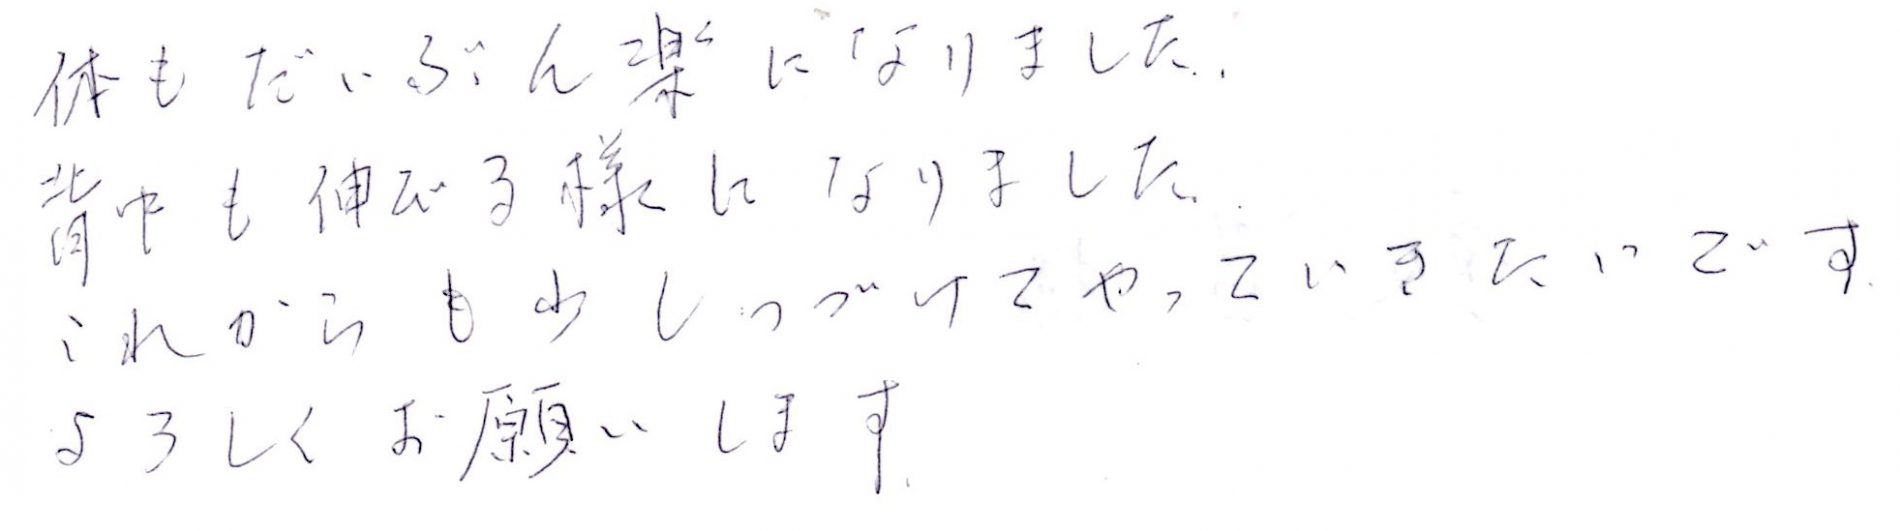 体もだいぶん楽になりました.
背中も伸びる様になりました.
これからも少しつづけてやっていきたいです.
よろしくお願いします.